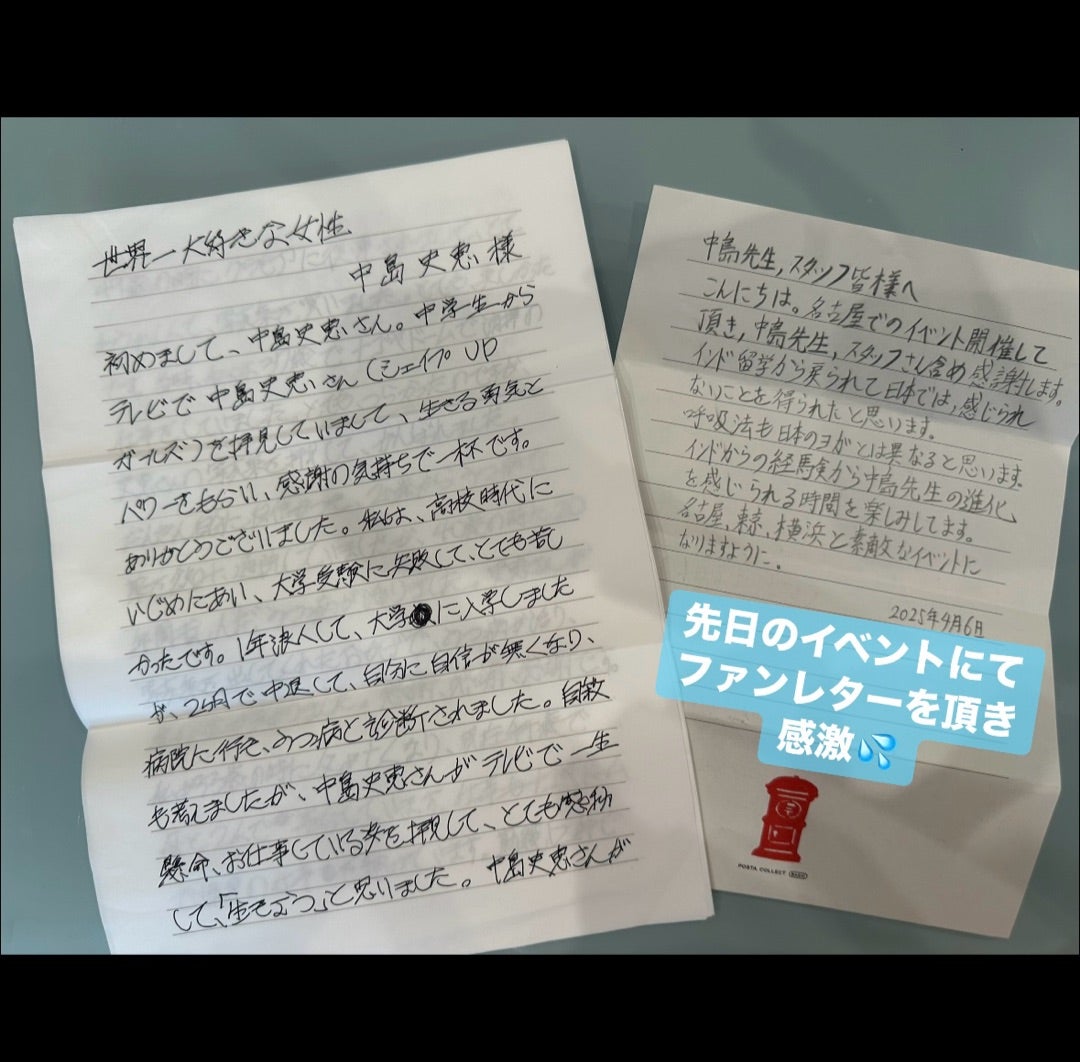 世界一大好きな女性
中島史恵様
初めまして、中島史恵さん。中学生から
テレビで中島史恵さん(シェイプUP
ガールズ)を拝見していまして、生きる勇気と
パワーをもらい、感謝の気持ちで一杯です。
ありがとうございました。私は、高校時代に
いじめにあい、大学受験に失敗して、とても苦し
かったです。1年浪人して、大学に入学しました
が、2ヶ月で中退して、自分に自信が無くなり、
病院に行き、うつ病と診断されました。自殺
も考えましたが、中島史恵さんがテレビで一生
懸命、お仕事している姿を拝見して、とても感動
して、「生きよう」と思いました。中島史恵さんが
中島先生,スタッフ皆様へ
こんにちは。名古屋でのイベント開催して
頂き,中島先生,スタッフさん含め感謝します。
インド留学から戻られて日本では,感じられ
ないことを得られたと思います。
呼吸法も日本のヨガとは異なると思います。
インドからの経験から中島先生の進化、
を感じられる時間を楽しみしてます。
名古屋,東京,横浜と素敵なイベントに
なりますように。
2025年4月6日
先日のイベントにて
ファンレターを頂き
感激💦
POSTA COLLECT BASIC